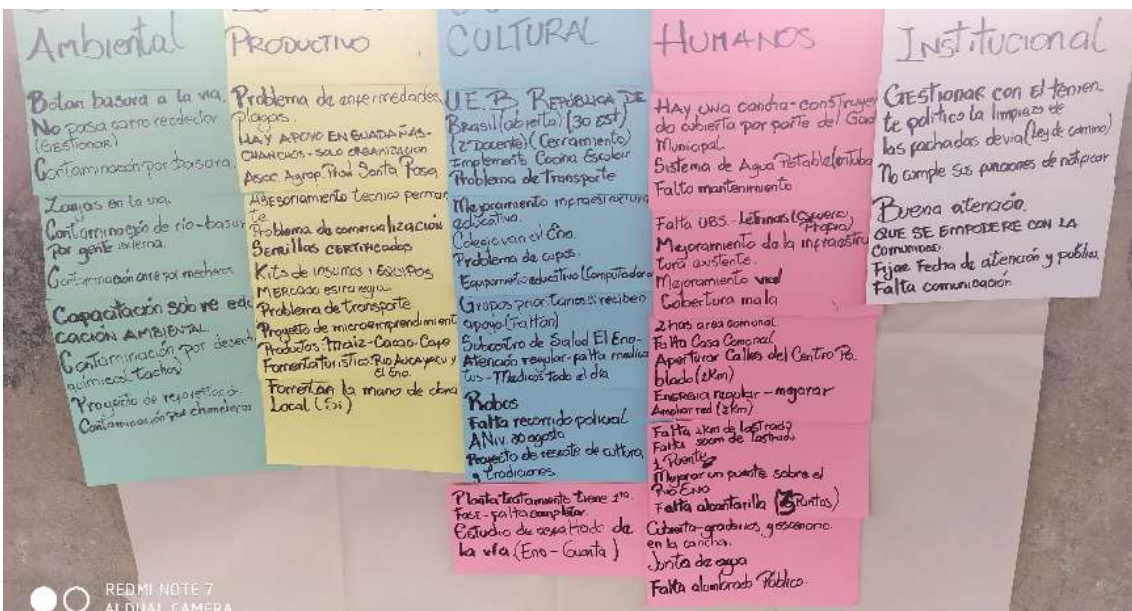 Ambiental
Botan basura a la via.
No pasa carro recolector
(GESTIONAR)
Contaminación por basura.
Zanjas en la via.
Contaminación de rio-basur
Por gente externa.
Contaminación aire por mecheros
Capacitación sobre edu
CACIÓN AMBIENTAL
Contaminación por desech
químicos(tachos)
Proyecto de reforestació.
Contaminación por chancheras
PRODUCTIVO
Problema de enfermedades,
Plagas.
HAY APOYO EN GUADAÑAS-
CHANCHOS - SOLO ORGANIZACIÓN
Asoc. Agrop. Prod Santa Rosa
ASESORAMIENTO tecnico perman
te
Problema de comercialización
Semillas CERTIFICADAS
Kits de insumos y EQUIPOS
MERCADO estrategico
Problema de transporte
Proyecto de microemprendimient
Productos: Maiz-Cacao-Cafe
Fomentaturistico: Rio Aucayacu y
El Eno.
Fomentan la mano de obra
Local (Si)
CULTURAL
U.E.B. REPÚBLICA DE
Brasil(abierta) (30 EST)
(2 Docente) (Cerramiento)
Implemente Cocina Escolar
Problema de Transporte
Mejoramiento infraestructura
educativa.
Colegio van al Eno.
Problema de cupos.
Equipamiento educativo (Computadora
Grupos prioritarios si reciben
apoyo (Faltan)
Subcentro de Salud El Eno-
Atención regular-falta medica
tos - Medicos todo el día
Robos
Falta recorrido policial
ANIV. 30 agosto
Proyecto de rescate de cultura
y tradiciones.
Planta tratamiento tiene 1ra.
Fase - falta completar
Estudio de asfaltado de
la vía (Eno - Guanta)
HUMANOS
HAY una cancha-construyen
do cubierta por parte del Gad
Municipal.
Sistema de Agua Potable(entuba
Falta mantenimiento
Falta UBS - Letrinas
Mejoramiento de la infraestru
tura existente.
Mejoramiento vial
Cobertura mala
2 has area comunal
Falta Casa Comunal
Aperturar Calles del Centro Po
blado (2km)
Energia regular - mejorar
Ampliar red (2km)
Falta 2km de lastrado
Falta 500m de lastrado
1 Puente
Mejorar un puente sobre el
Rio Eno
Falta alcantarilla (3 Puntos)
Cubierta-graderios y escenario
en la cancha.
Junta de agua
Falta alumbrado Público.
Institucional
GESTIONAR con El tenien.
te politico la limpieza de
las fachadas de via (ley de camino)
No cumple sus funciones de notificar
Buena atención.
QUE SE EMPODERE CON LA
Comunidad
Fijar Fecha de atención y publica.
Falta comunicación
REDMI NOTE 7
AI DUAL CAMERA